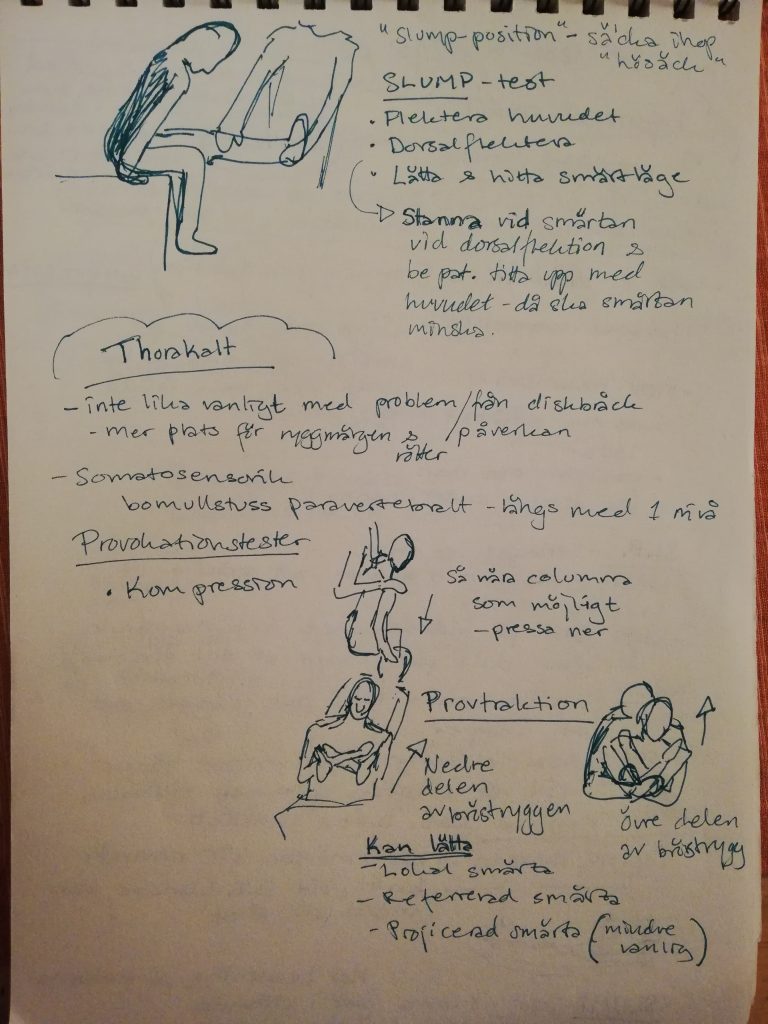 "Slump-position" - säcka ihop
"hösäck"
SLUMP-test
• Flektera huvudet
• Dorsalflektera
• Lätta & hitta smärtläge
Stanna vid smärtan
vid dorsalflektion &
be pat. titta upp med
huvudet - då ska smärtan
minska.
Thorakalt
- inte lika vanligt med problem/från diskbråck
- mer plats för ryggmärgen & rötter / påverkan
- Somatosensorik
bomullstuss paravertebralt - längs med 1 nivå
Provokationstester
• Kompression
Så nära columna
som möjligt
- pressa ner
Provtraktion
Nedre
delen
av bröstryggen
Övre delen
av bröstrygg
Kan lätta
- Lokal smärta
- Refererad smärta
- Projicerad smärta (mindre
vanlig)